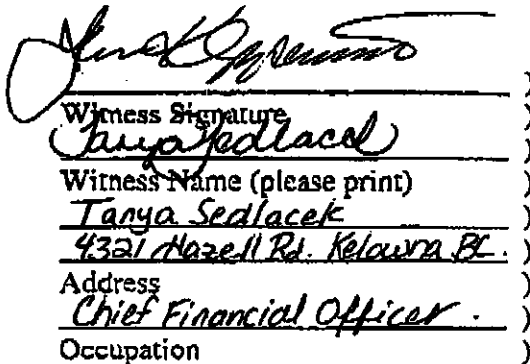 )
Witness Signature )
Tanya Sedlacek )
Witness Name (please print) )
Tanya Sedlacek )
4321 Hazell Rd. Kelowna BC. )
Address )
Chief Financial Officer. )
Occupation )